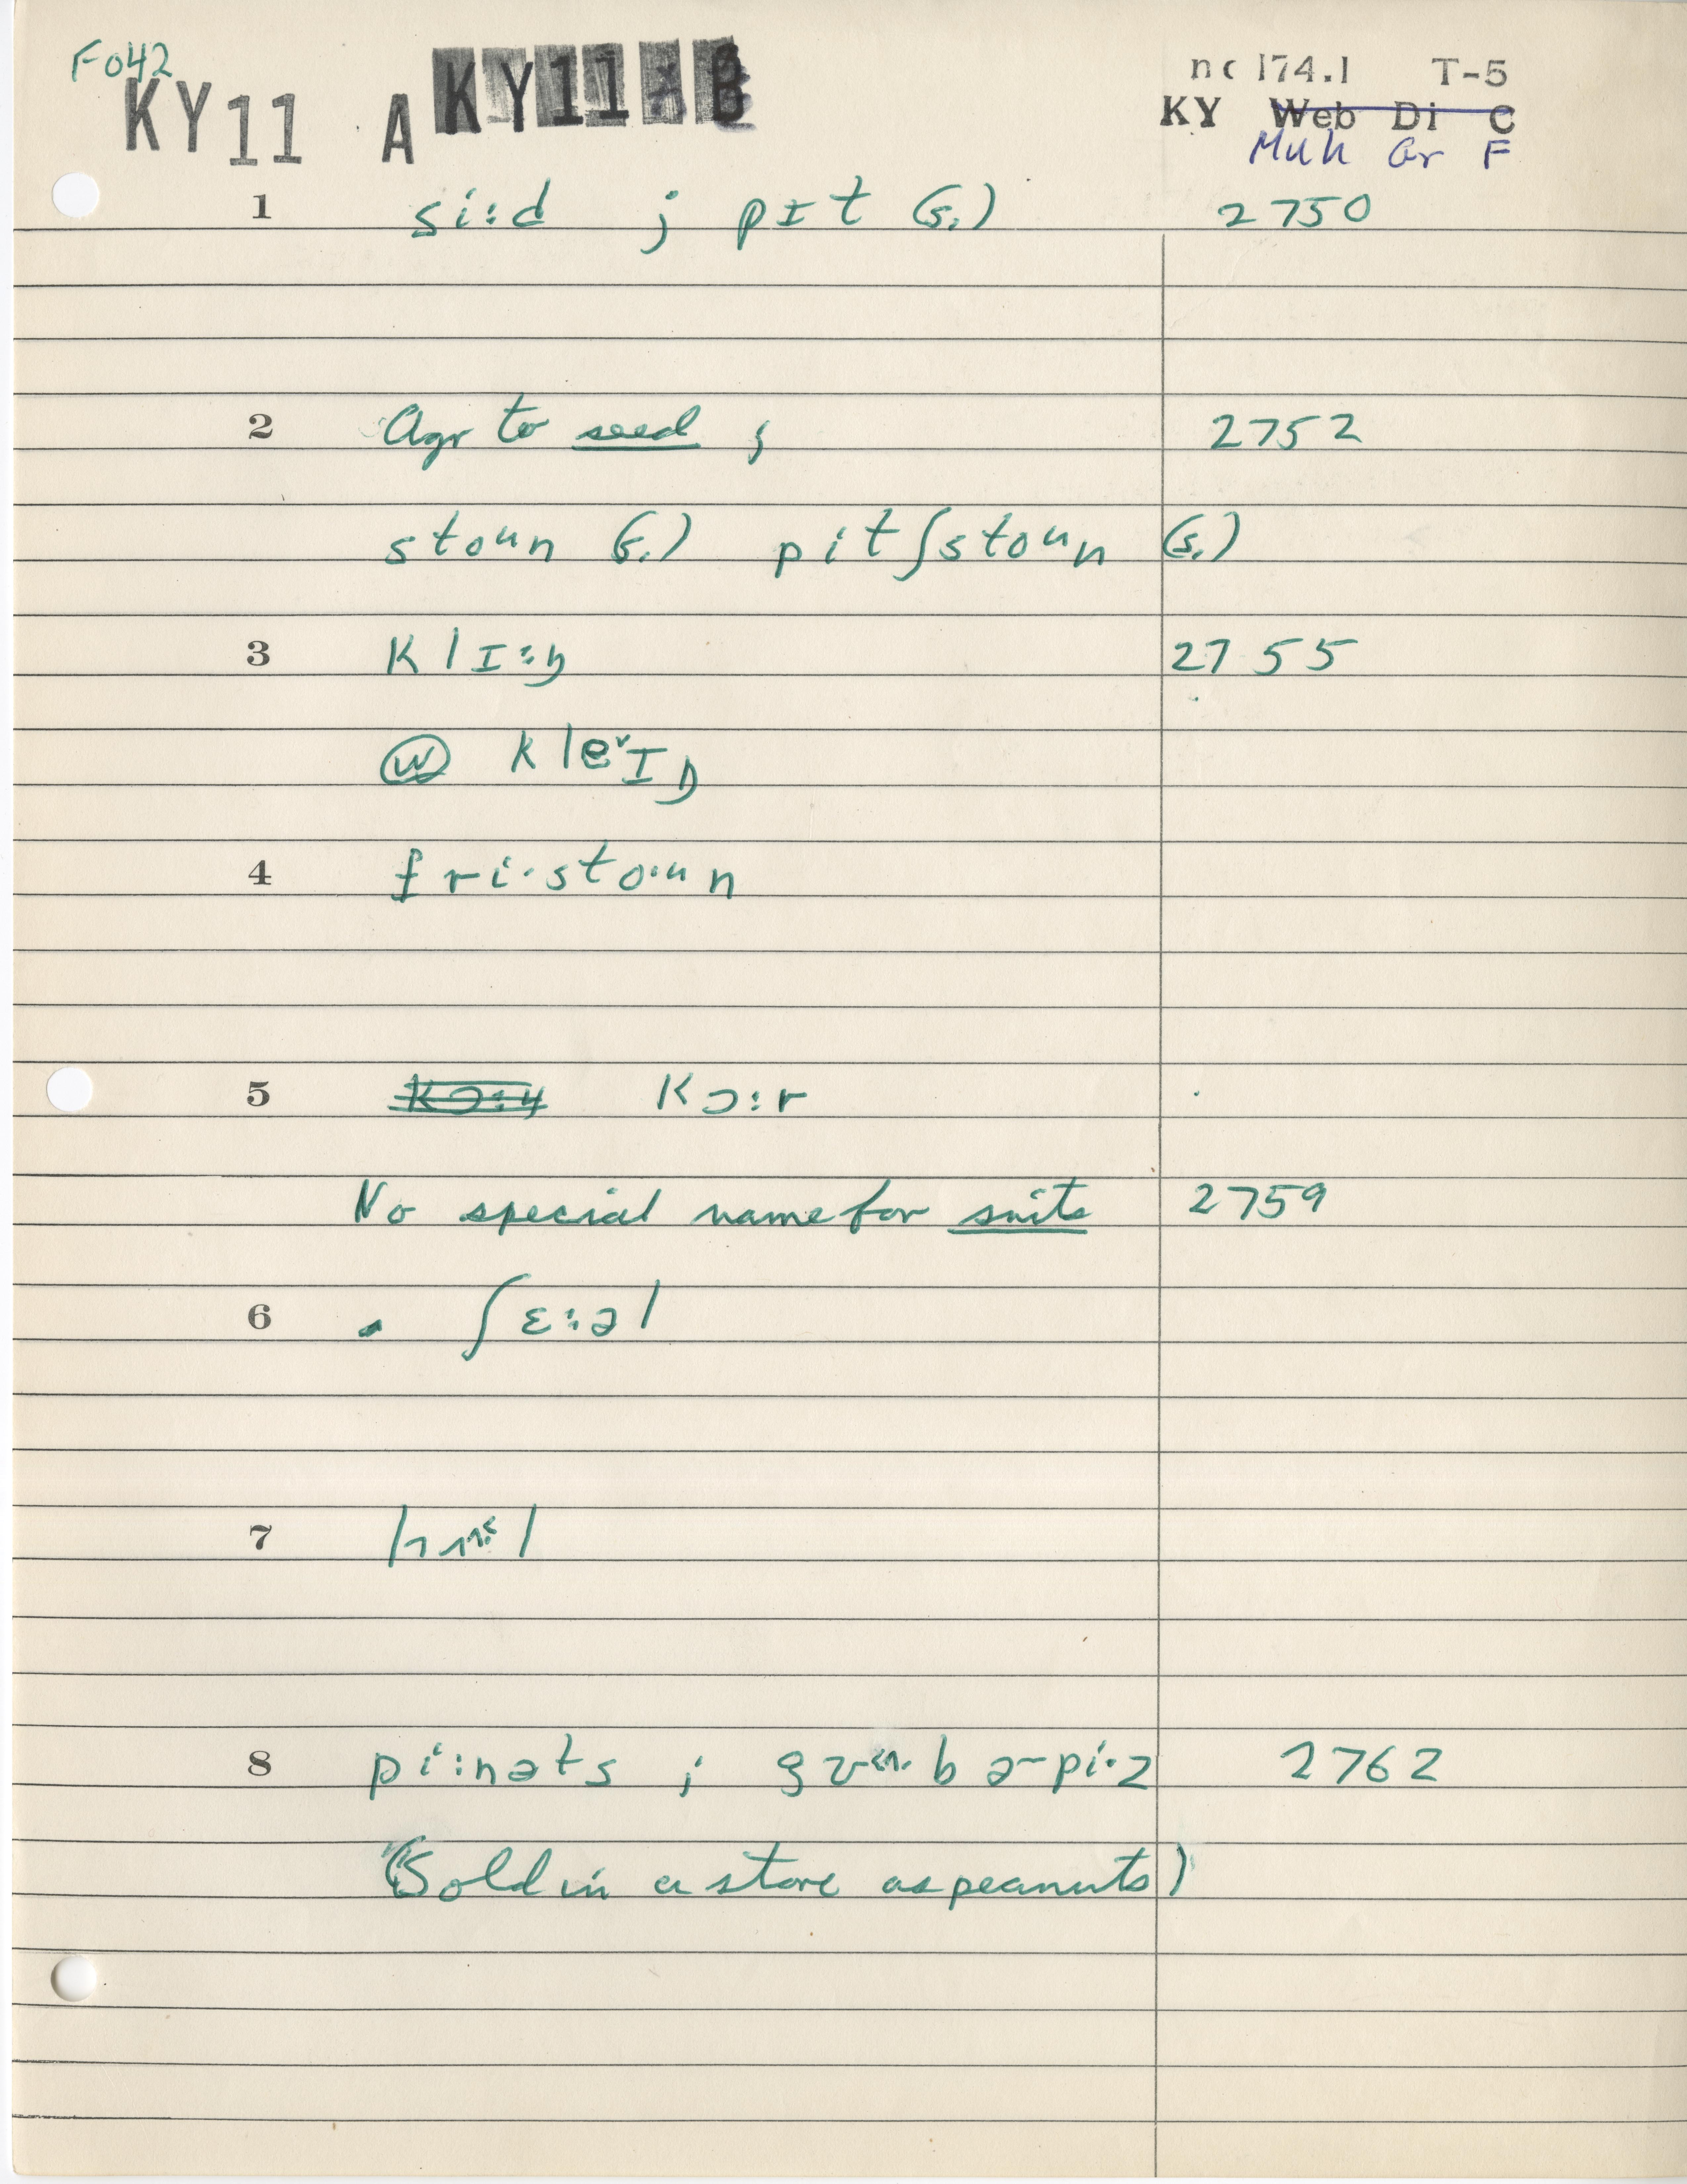 F042
KY11 A KY11 B
nc 174.1 T-5
KY Web Di C
Muh Gr F
1 si:d ; pɪt (s.) 2750
2 Agr to seed ; 2752
stoun (s.) pit ʃstoun (s.)
3 klɪ:ŋ 2755
(w) kle˅ɪŋ
4 fri·sto·un
5 kɔ:r
No special name for suits 2759
6 ʃɛ:əl
7
8 pi:nəts ; bɚpi·z 2762
(Sold in a store as peanuts)